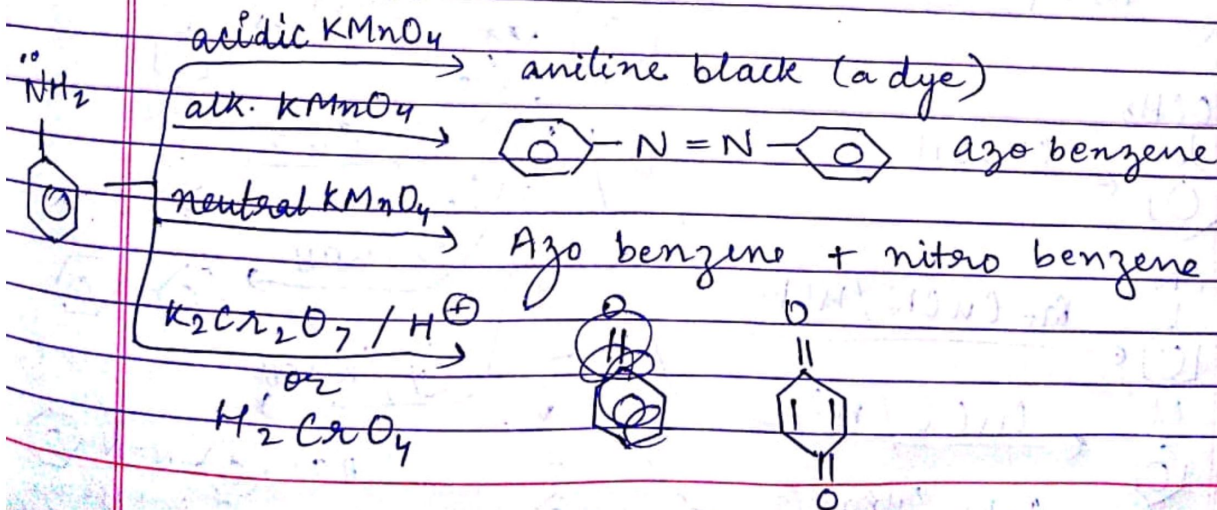 acidic KMnO4
aniline black (a dye)
NH2
alk. KMnO4
N = N
azo benzene
neutral KMnO4
Azo benzene + nitro benzene
K2Cr2O7 / H⊕
or
H2CrO4
O
O
O